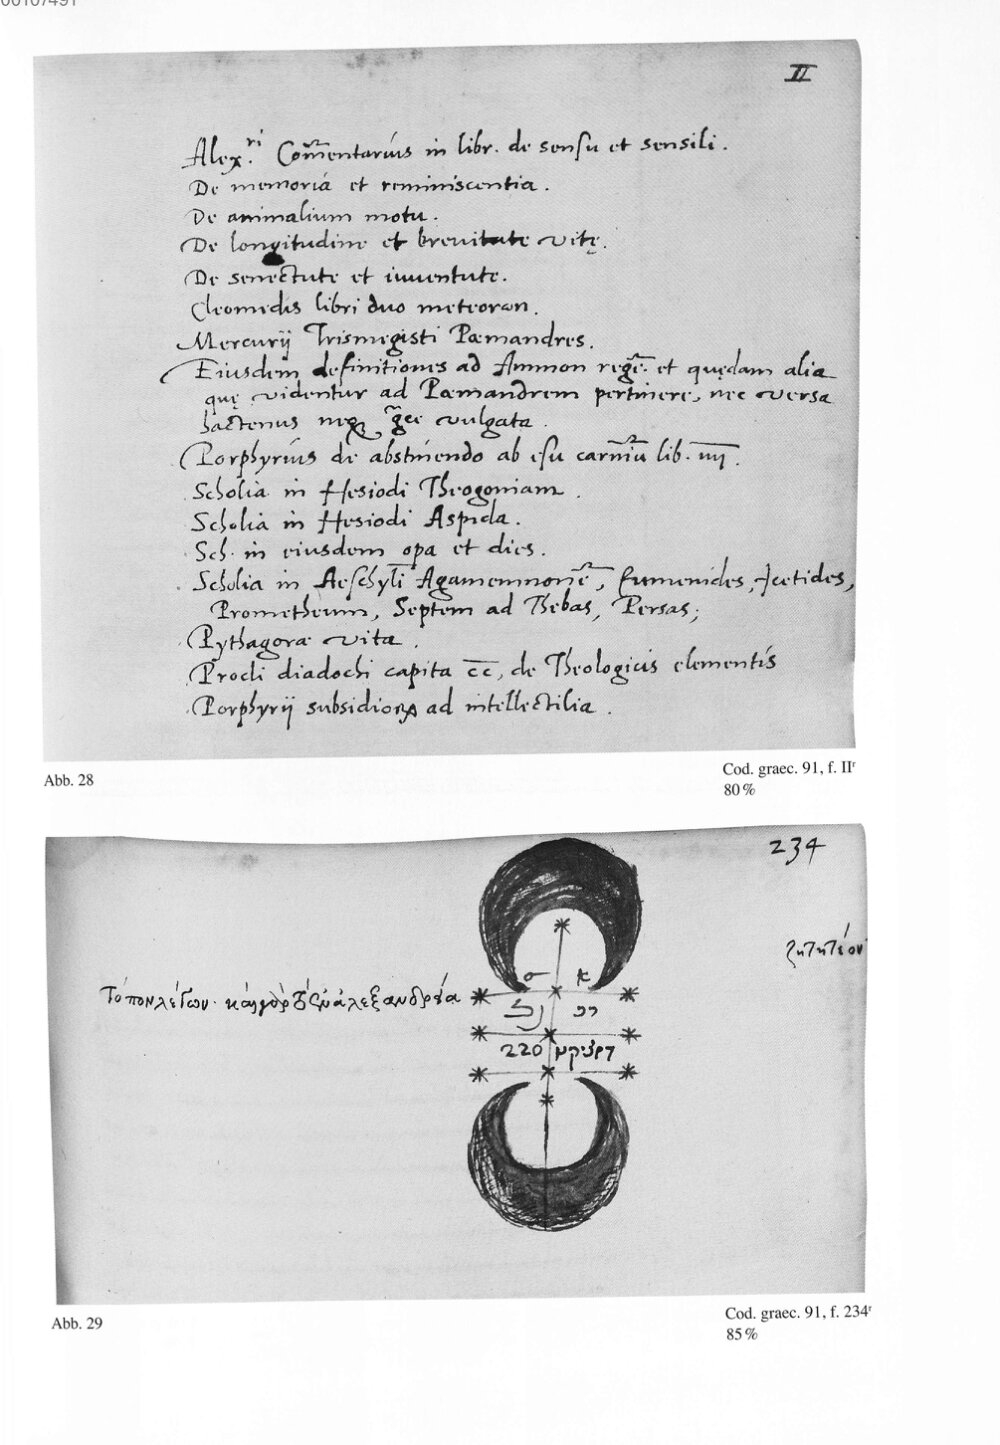 00107491
II
Alex.ri Com̃entarius in libr. de sensu et sensili.
De memoria et reminiscentia.
De animalium motu.
De longitudine et breuitate vitę.
De senectute et iuuentute.
Cleomedis libri duo meteoron.
Mercurij Trismegisti Pæmandres.
Eiusdem definitiones ad Ammon regẽ. et quędam alia
quę videntur ad Pæmandrem pertinere, nec versa
hactenus neq, gr̃ce vulgata.
Porphyrius de abstinendo ab esu carniũ lib. iiij.
Scholia in Hesiodi Theogoniam.
Scholia in Hesiodi Aspida.
Sch. in eiusdem opa et dies.
Scholia in Aeschyli Agamemnonẽ, Eumenides, Icetides,
Prometheum, Septem ad Thebas, Persas;
Pythagoræ vita.
Procli diadochi capita c̅c̅, de Theologicis elementis
Porphyrij subsidior. ad intellectilia.
Abb. 28
Cod. graec. 91, f. IIr
80 %
234
ζητητέον
Τόπον λέγων
ἀλεξανδρέα
220
Abb. 29
Cod. graec. 91, f. 234r
85 %